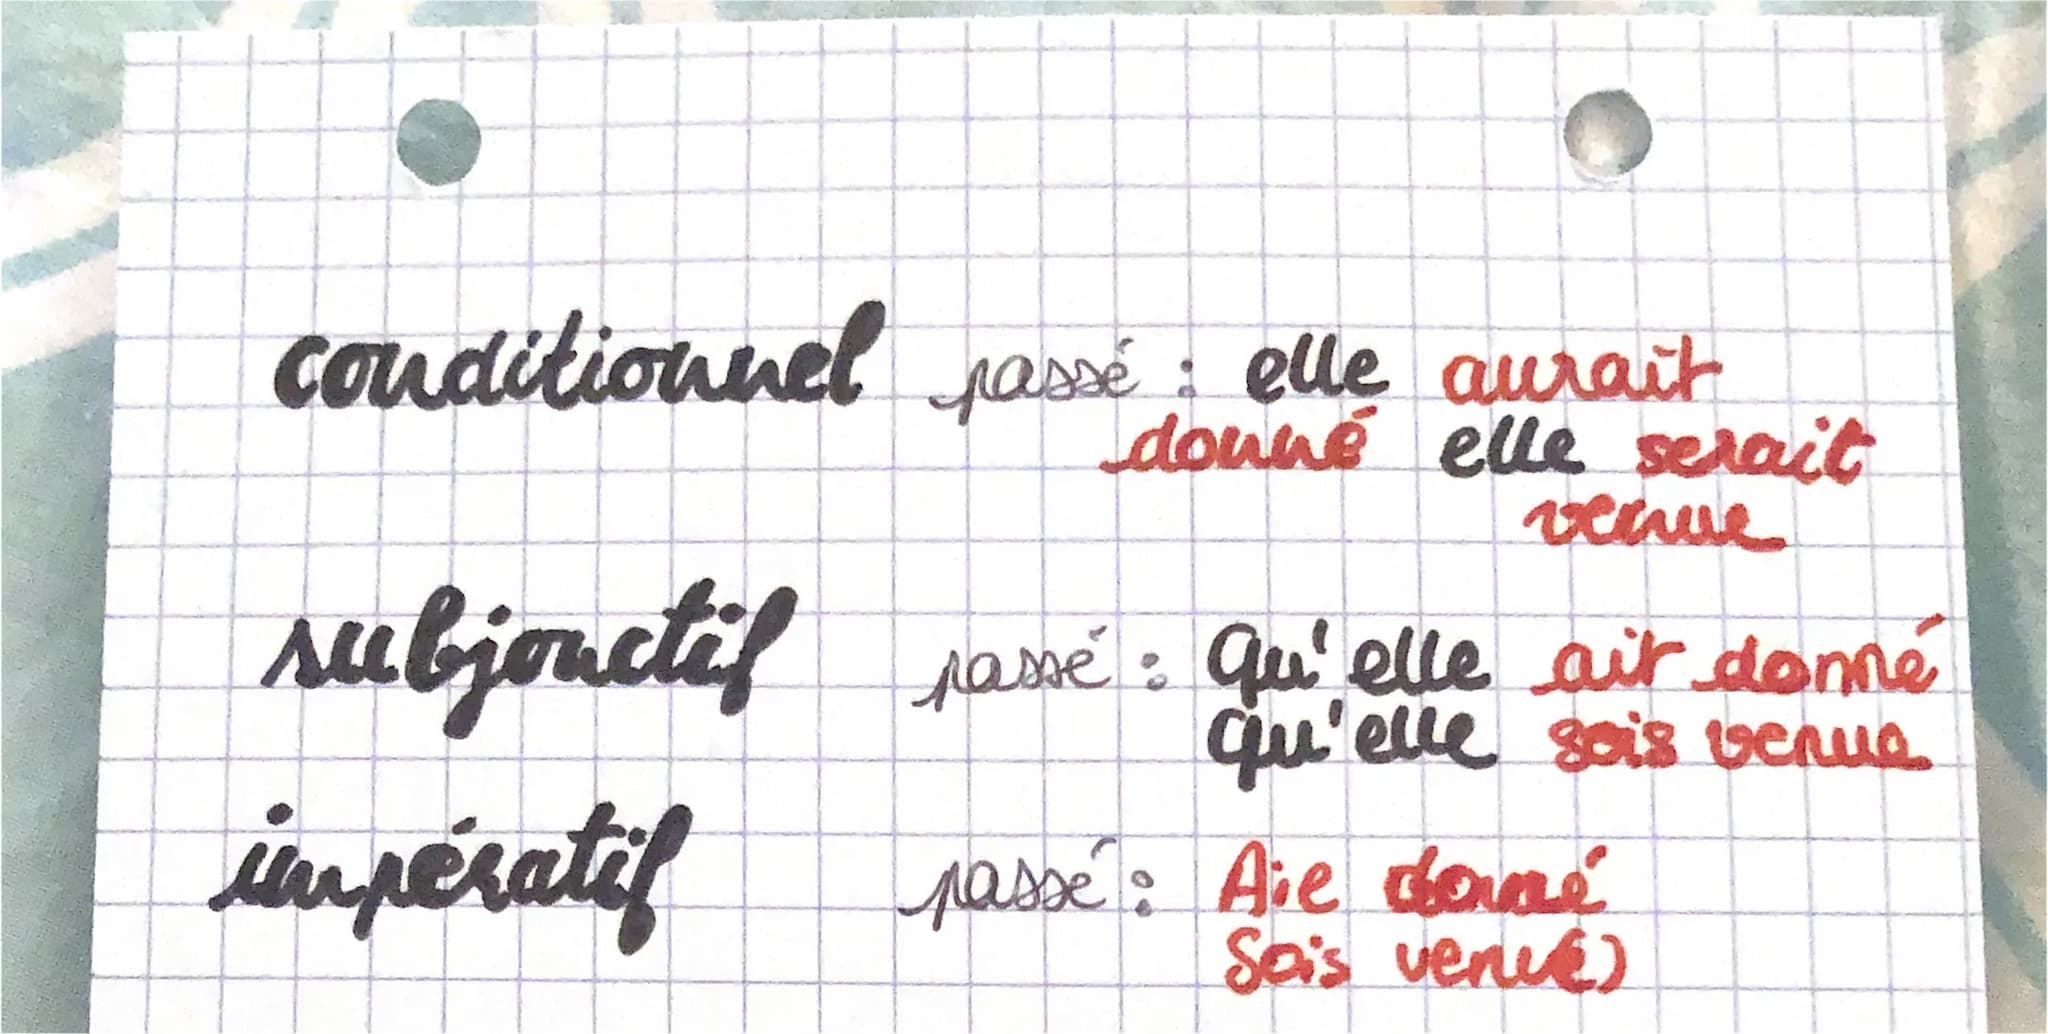 conditionnel passé : elle aurait
donné elle serait
venue
subjonctif passé : Qu'elle ait donné
Qu'elle sois venue
impératif passé : Aie donné
Sois venu(e)